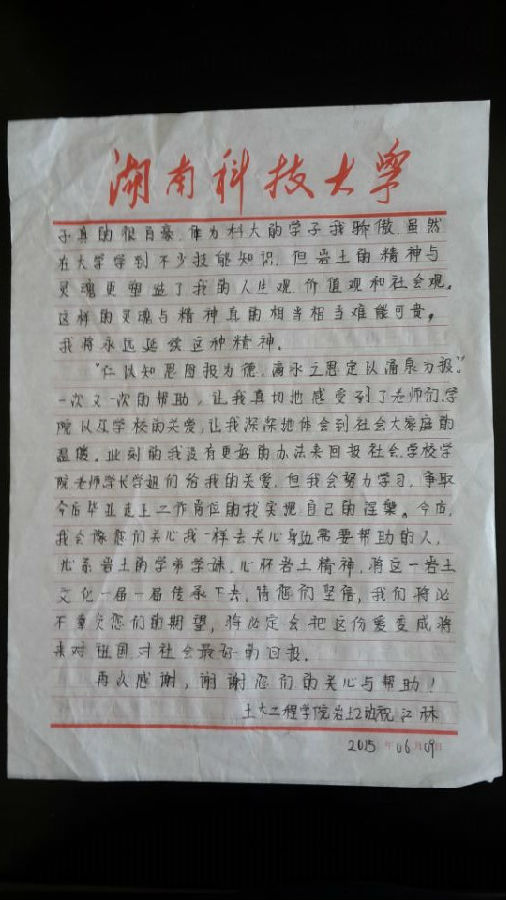 湖南科技大学
子真的很自豪,作为科大的学子我骄傲,虽然
在大学学到不少技能知识,但岩土的精神与
灵魂更塑造了我的人生观、价值观和社会观。
这样的灵魂与精神真的相当相当难能可贵。
我将永远延续这种精神。
"仁以知恩图报为德,滴水之恩定以涌泉为报"。
一次又一次的帮助,让我真切地感受到了老师们、学
院以及学校的关爱,让我深深地体会到社会大家庭的
温暖。此刻的我没有更好的办法来回报社会、学校、学
院、老师、学长学姐们给我的关爱,但我会努力学习,争取
今后毕业走上工作岗位的我实现自己的涅槃。今后,
我会像您们关心我一样去关心身边需要帮助的人,
心系岩土的学弟学妹,心怀岩土精神,将这一岩土
文化一届一届传承下去,请您们坚信,我们将必
不辜负您们的期望,将必定会把这份爱变成将
来对祖国、对社会最好的回报。
再次感谢,谢谢您们的关心与帮助!
土木工程学院岩土2班祝江林
2015年06月09日